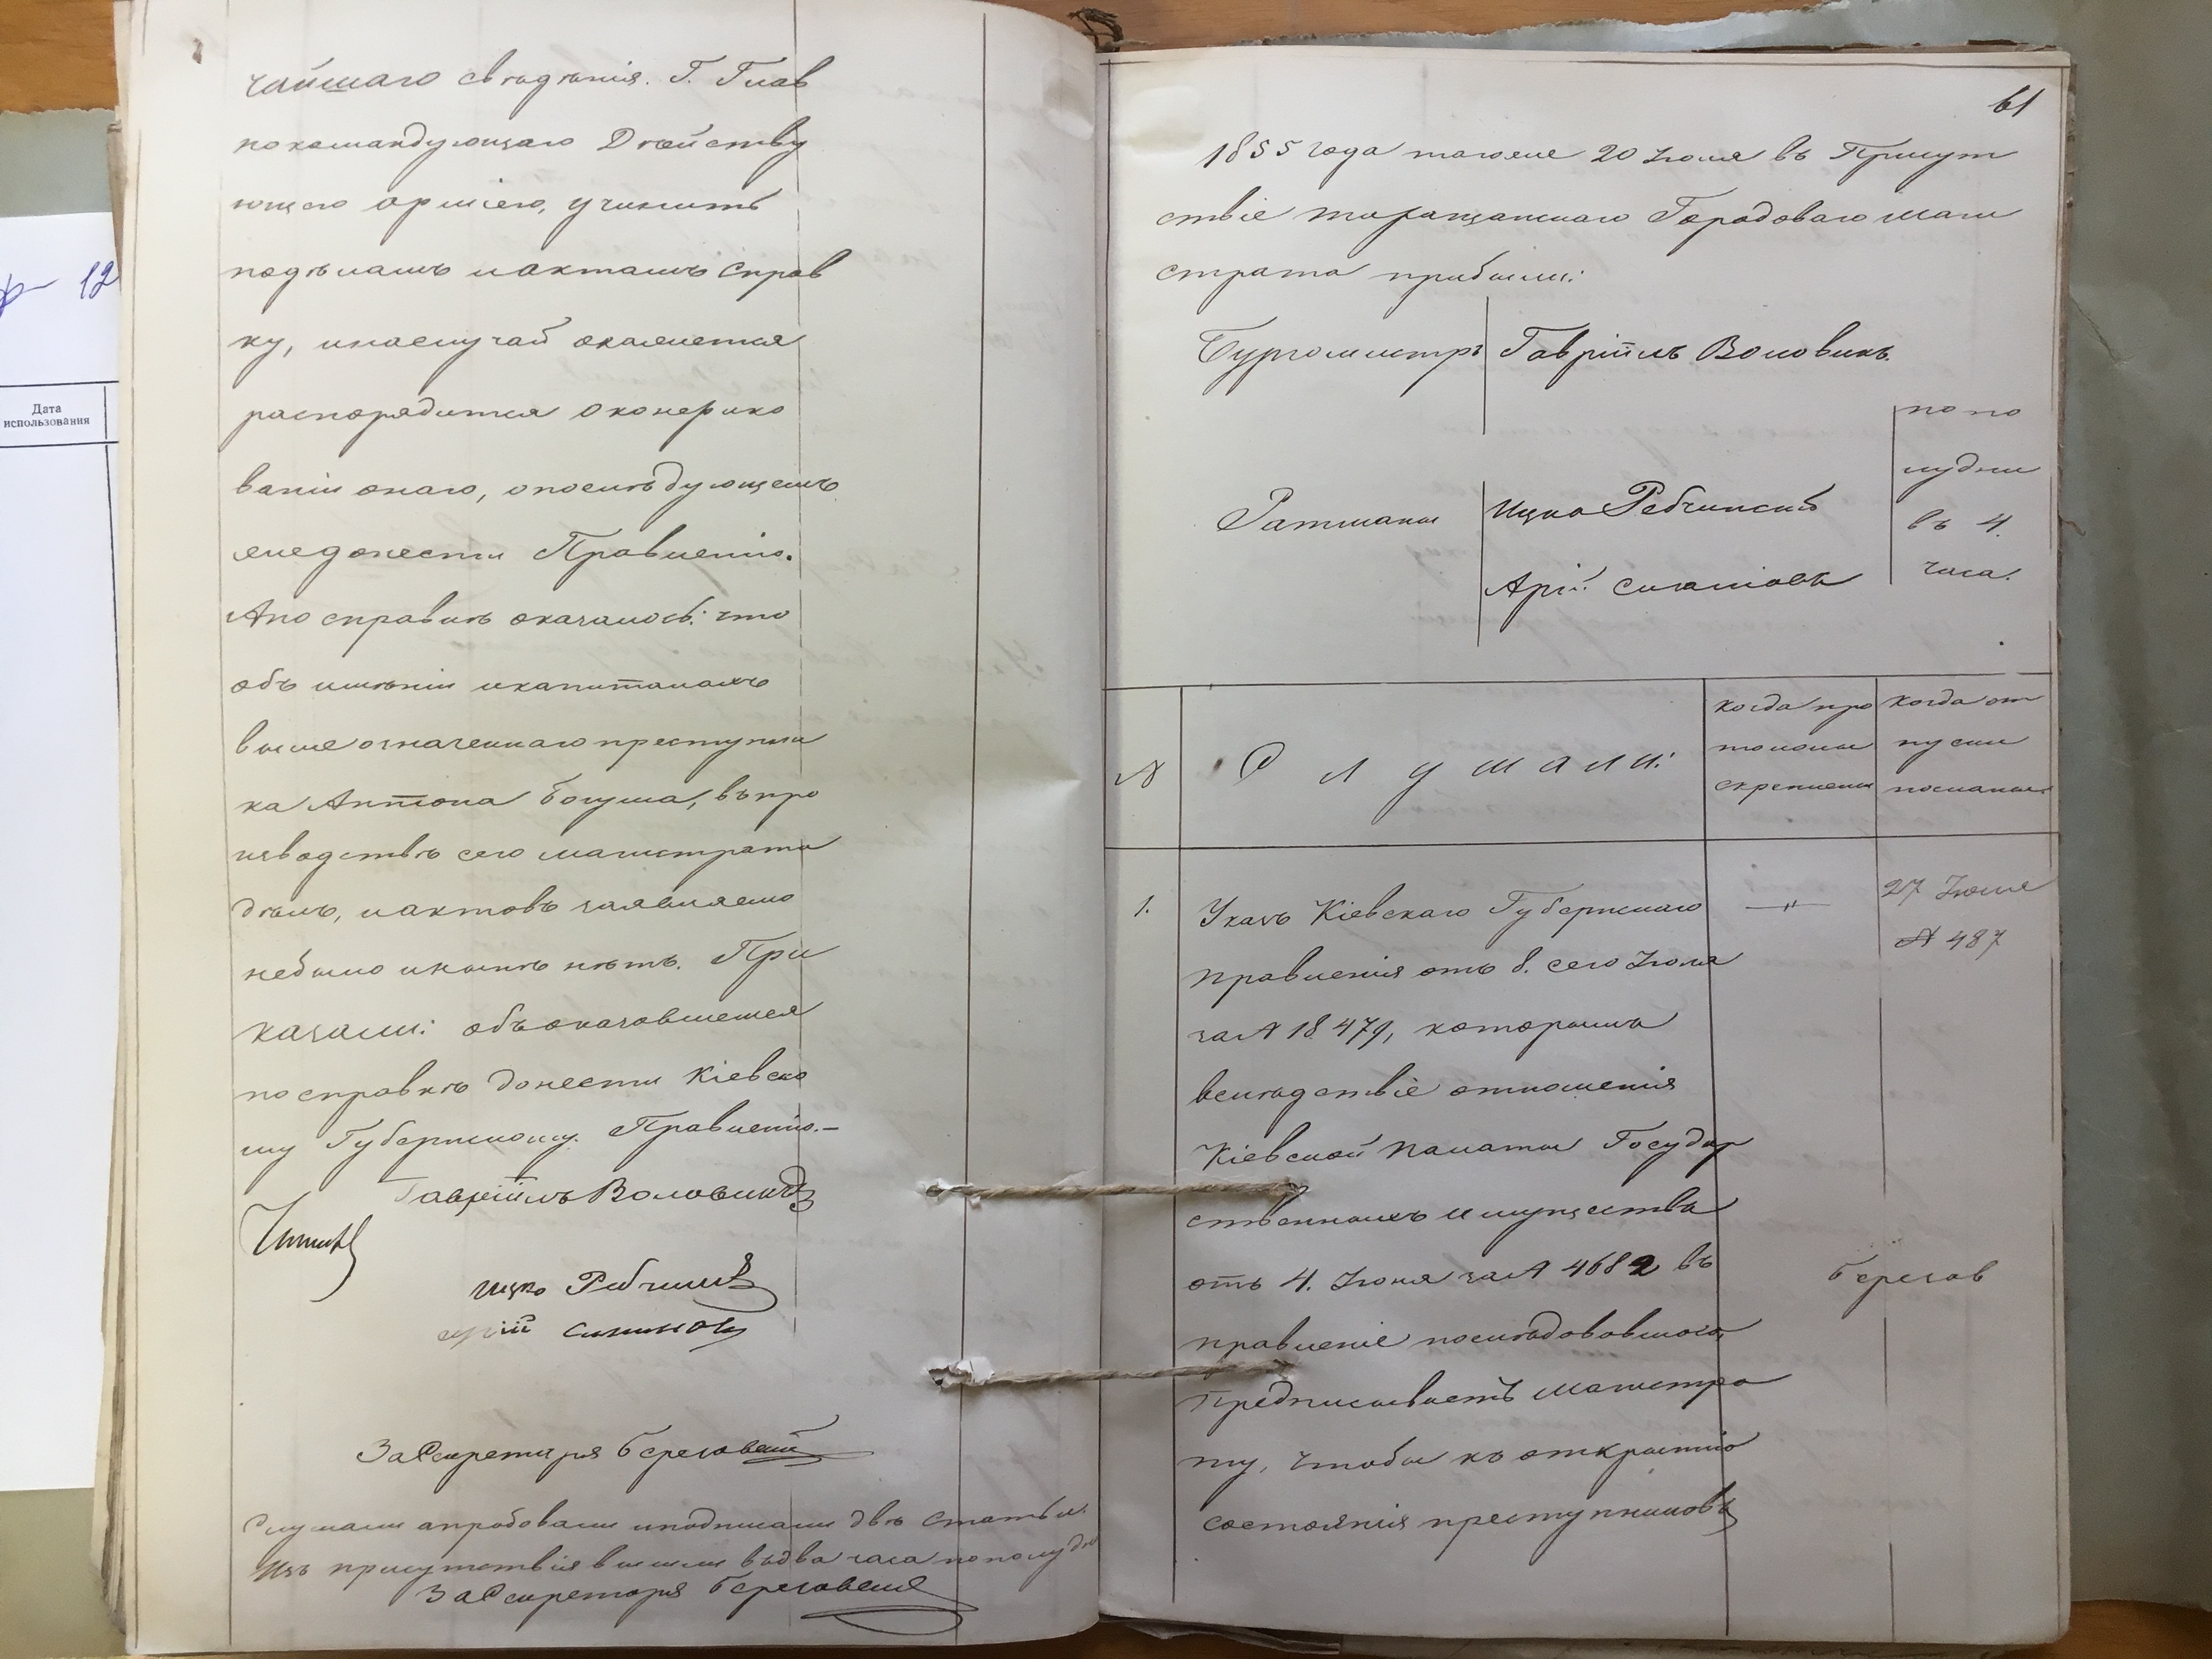 чайшаго сведѣнія. Г. Глав
нокомандующаго Дѣйству
ющею арміею, учинить
подѣламъ иактамъ Справ
ку, инаслучай окажется
распорядится оконфиско
ваніи онаго, опослѣдующемъ
же донести Правленію.
Апо справкѣ оказалось: что
объ имѣніи икапиталахъ
выше означеннаго преступни
ка Антона Богуша, въ про
изводствѣ сего магистрата
дѣлъ, иактовъ заявляемо
небыло инынѣ нѣтъ. При
казали: объоказавшемся
по справкѣ донести Кіевско
му Губернскому Правленію.—
Гавріилъ Воловикъ
Ицко Ребчинскій
Арій
За Секретаря Березовскій
Слушали апробовали иподписали двѣ Статьи.
Изъ присутствія вышли въдва часа пополуд
За Секретаря Березовскій
Дата
использования
12
61
1855 года тогоже 20 Іюля въ Присут
ствіе Таращанскаго Городоваго Маги
страта прибыли:
Бургомистръ Гавріилъ Воловикъ.
Ратманы Ицко Ребчинскій
Арій
попо
лудни
въ 4.
часа.
№
Слушали:
когда про
токолы
скреплены
когда от
пуски
посланы
1.
Указъ Кіевскаго Губернскаго
Правленія отъ 8. сего Іюля
за № 18479, которымъ
вслѣдствіе отношенія
Кіевской Палаты Государ
ственныхъ имуществъ
отъ 4. Іюня за № 4682 въ
правленіе послѣдовавшаго,
Предписываетъ Магистра
ту, чтобы къ открытію
состоянія преступниковъ
—"—
27 Іюля
№ 487
Березов